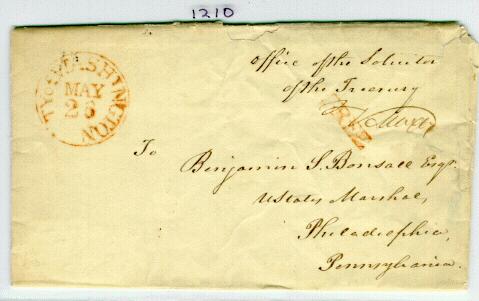 1210
CITY OF WASHINGTON
MAY
26
Office of the Solicitor
of the Treasury
FREE
V. Maxcy
To
Benjamin S. Bonsall Esqr.
U States Marshal,
Philadelphia,
Pennsylvania.